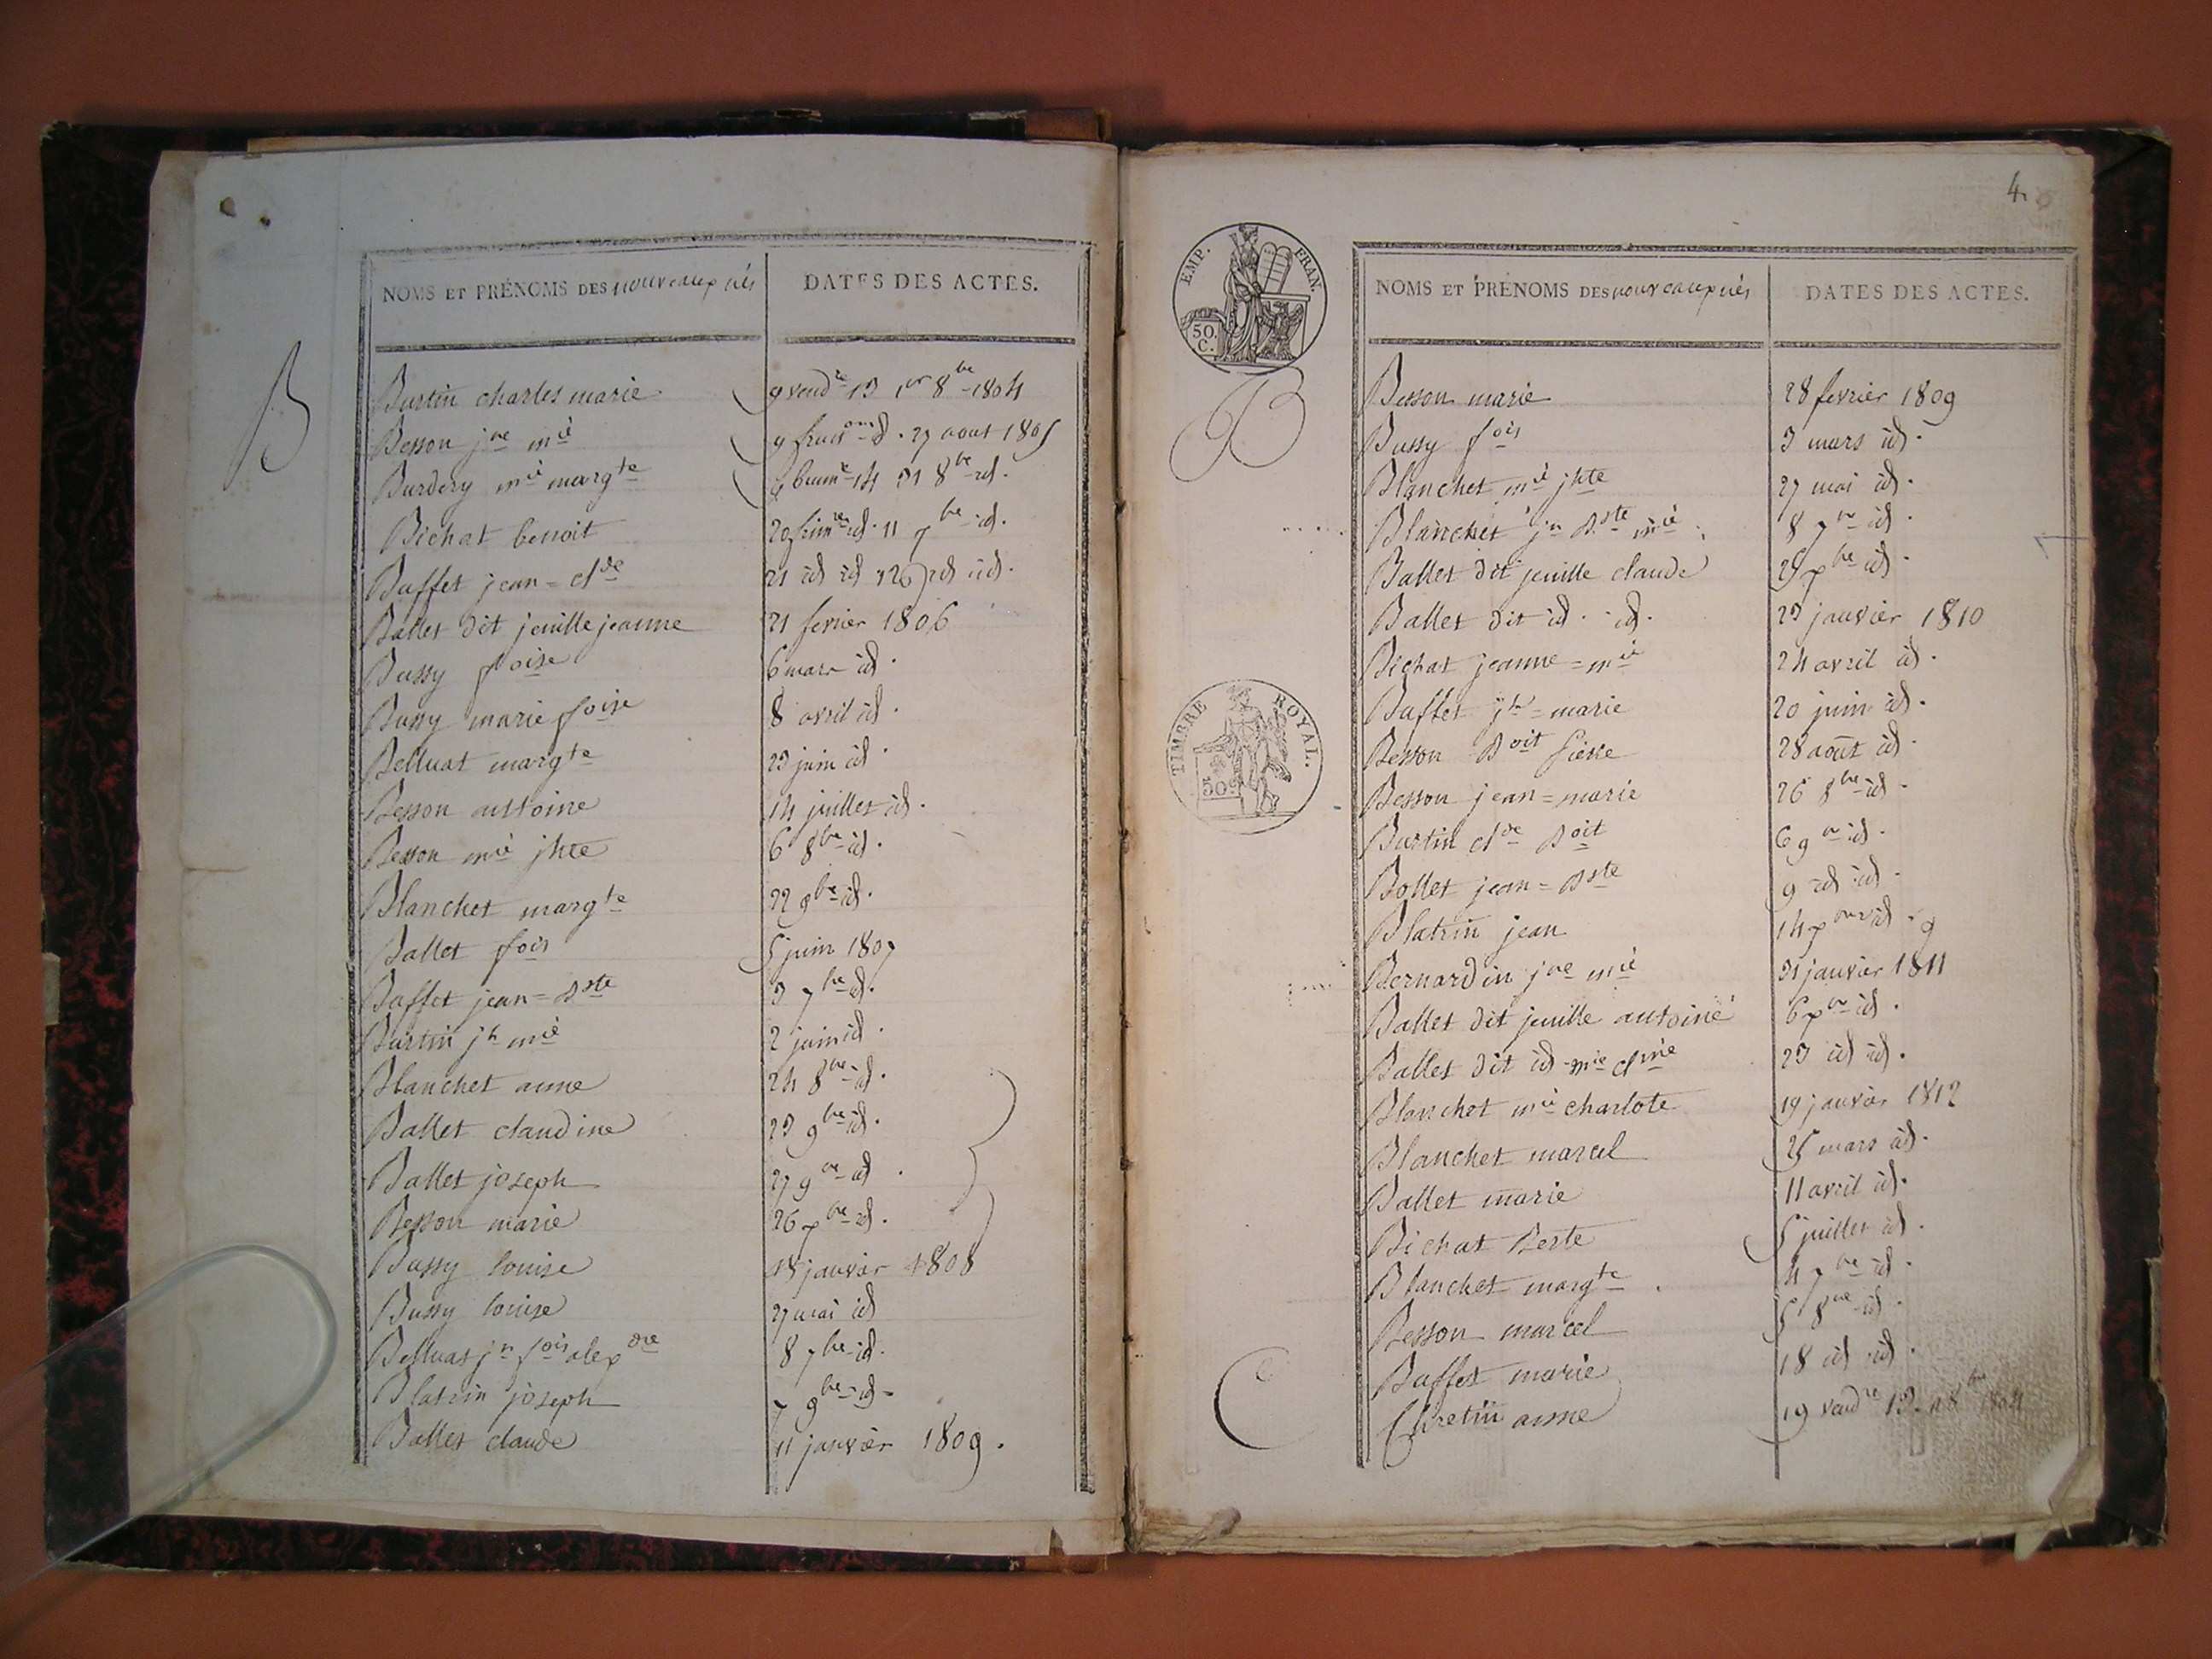 NOMS ET PRÉNOMS DES nouveaux nés DATES DES ACTES.
B
Burtin charles marie 9 vendre 13 1er 8bre 1804
Besson jne mie 9 fructor id. 27 aout 1805
Burdery mie margte 9 brumre 14 31 8bre id.
Bichat benoit 20 frimre id. 11 xbre id.
Buffet jean=clde 21 id id 12 id id.
Ballet dit jenille jeanne 21 fevrier 1806
Bussy foise 6 mars id.
Bussy marie foise 8 avril id.
Belluat margte 23 juin id
Besson antoine 14 juillet id.
Besson mie jhte 6 8bre id.
Blanchet margte 22 9bre id.
Ballet fois 5 juin 1807
Buffet jean=Bste 3 7bre id.
Burtin jh mie 2 juin id.
Blanchet anne 24 8bre id.
Ballet claudine 23 9bre id.
Ballet joseph 27 9bre id.
Besson marie 26 xbre id.
Bussy louise 18 janvier 1808
Bussy louise 27 mai id
Belluat jn fois alexdre 8 7bre id.
Blatrin joseph 7 9bre id.
Ballet claude 11 janvier 1809.
4.
EMP. FRAN.
50. C.
NOMS ET PRÉNOMS DES nouveaux nés DATES DES ACTES.
B
Besson marie 28 fevrier 1809
Bussy fois 3 mars id.
Blanchet mie jhte 27 mai id.
Blanchet jn Bste mie 8 7bre id.
Ballet dit jenille claude 29 xbre id.
Ballet dit id. id. 23 janvier 1810
Bichat jeanne=mie 24 avril id.
Buffet jh=marie 20 juin id.
TIMBRE ROYAL.
50c
Besson Boit pierre 28 août id.
Besson jean=marie 26 8bre id.
Burtin clde Boit 6 9bre id.
Bollet jean=Bste 9 id id.
Blatrin jean 14 xbre id.
Bernardin jne mie 31 janvier 1811
Ballet dit jenille antoine 6 xbre id.
Ballet dit id mie cline 23 id id.
Blanchet mie charlote 19 janvier 1812
Blanchet marcel 25 mars id.
Ballet marie 11 avril id.
Bichat Berte 5 juillet id.
Blanchet margte 4 7bre id.
Besson marcel 5 8bre id.
Buffet marie 18 id id.
C
Chretin anne 19 vendre 13. 8bre 1804